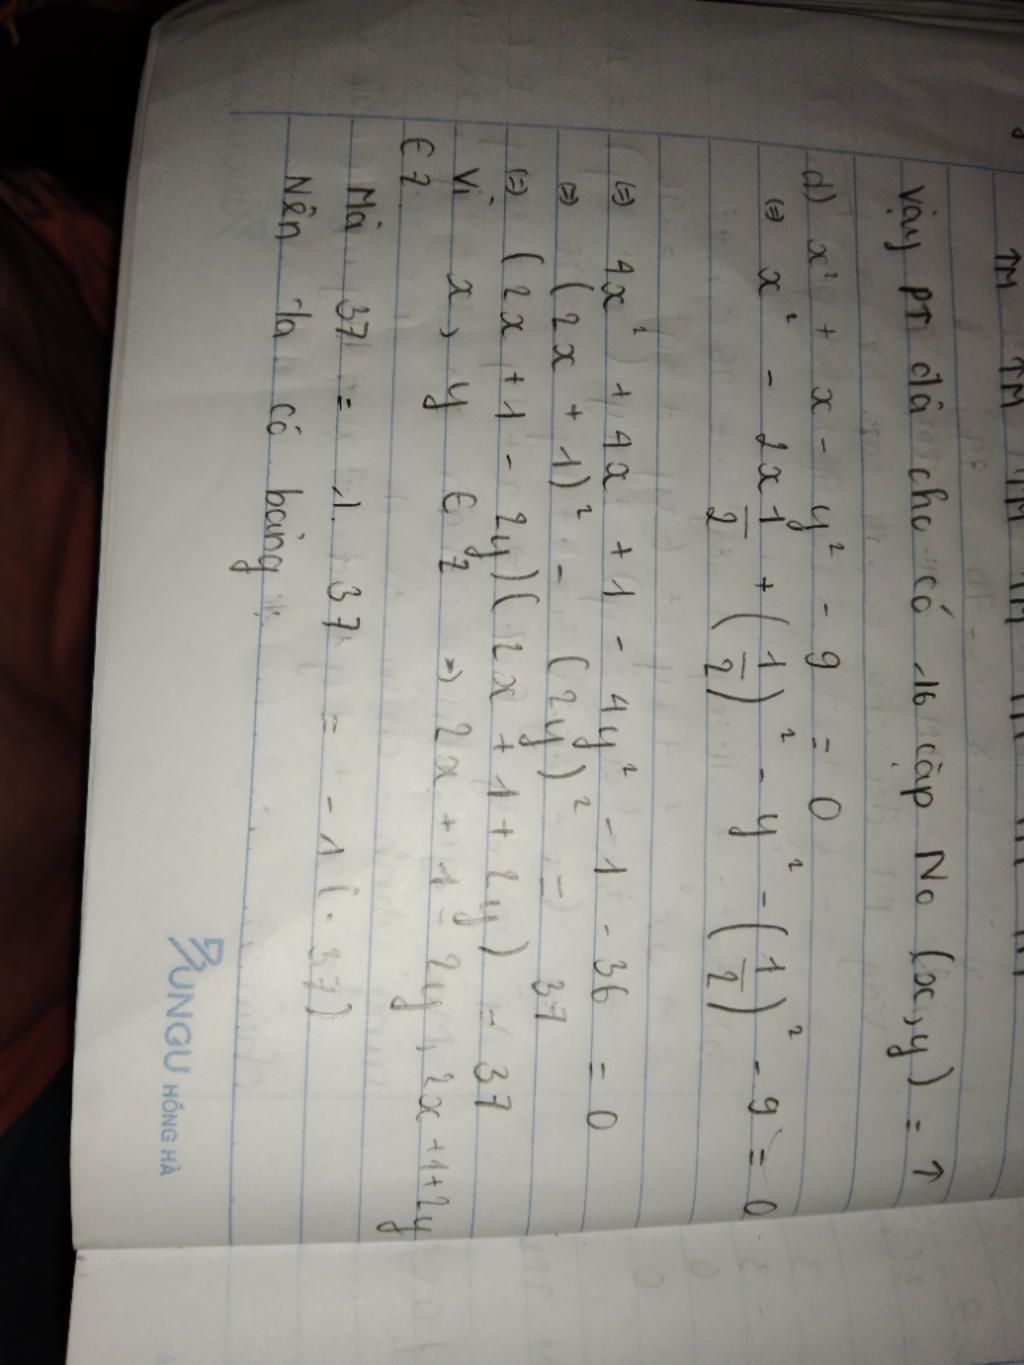 TM TM TM TM TM TM
Vậy PT đã cho có 16 cặp No (x, y) = ↑
d) x² + x - y² - 9 = 0
(=) x² - 2x 1/2 + (1/2)² - y² - (1/2)² - 9 = 0
(=) 4x² + 4x + 1 - 4y² - 1 - 36 = 0
(=) (2x + 1)² - (2y)² = 37
(=) (2x + 1 - 2y)(2x + 1 + 2y) = 37
Vì x, y ∈ Z => 2x + 1 - 2y, 2x + 1 + 2y
∈ Z
Mà 37 = 1. 37 = -1(-37)
Nên ta có bảng:
BUNGU HỒNG HÀ